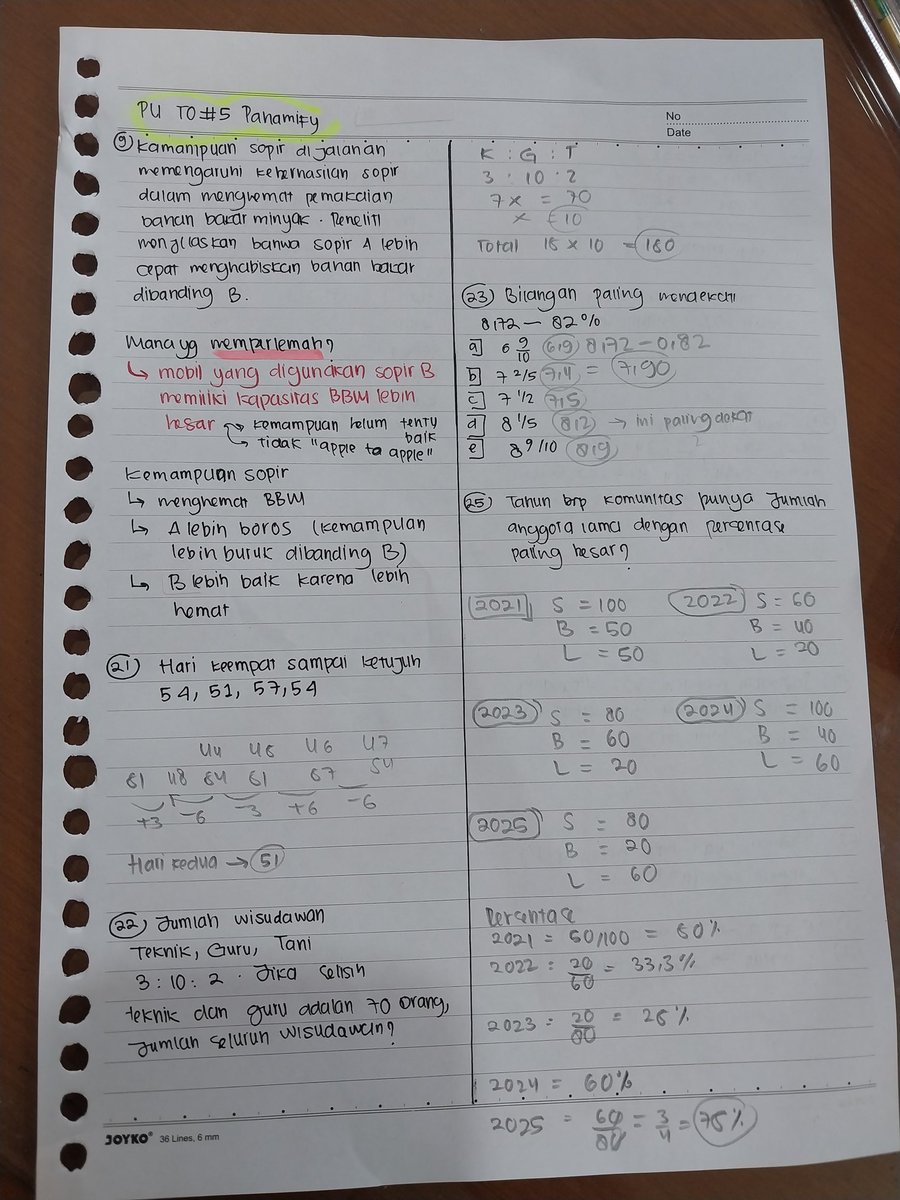 PU TO#5 Pahamify
No
Date
9) Kemampuan sopir di jalanan
memengaruhi keberhasilan sopir
dalam menghemat pemakaian
bahan bakar minyak. Peneliti
menjelaskan bahwa sopir A lebih
cepat menghabiskan bahan bakar
dibanding B.
Mana yg memperlemah?
↳ mobil yang digunakan sopir B
memiliki kapasitas BBM lebih
besar
→ kemampuan belum tentu baik
→ tidak "apple to apple"
Kemampuan sopir
↳ menghemat BBM
↳ A lebih boros (kemampuan
lebih buruk dibanding B)
↳ B lebih baik karena lebih
hemat
21) Hari keempat sampai ketujuh
54, 51, 57, 54
44 45 46 47
51 48 54 51 57 54
+3 -6 -3 +6 -6
Hari kedua → 51
22) Jumlah wisudawan
Teknik, Guru, Tani
3 : 10 : 2. Jika selisih
teknik dan guru adalah 70 orang,
jumlah seluruh wisudawan?
JOYKO® 36 Lines, 6 mm
K : G : T
3 : 10 : 2
7x = 70
x = 10
Total 15 x 10 = 150
23) Bilangan paling mendekati
8,72 - 82%
a] 6 9/10 (6,9) 8,72 - 0,82
b] 7 2/5 (7,4) = 7,90
c] 7 1/2 (7,5)
d] 8 1/5 (8,2) → ini paling dekat
e] 8 9/10 (8,9)
25) Tahun brp komunitas punya jumlah
anggota lama dengan persentase
paling besar?
2021 S = 100 2022 S = 60
B = 50 B = 40
L = 50 L = 20
2023 S = 80 2024 S = 100
B = 60 B = 40
L = 20 L = 60
2025 S = 80
B = 20
L = 60
Persentase
2021 = 50/100 = 50%
2022 = 20/60 = 33,3%
2023 = 20/80 = 25%
2024 = 60%
2025 = 60/80 = 3/4 = 75%